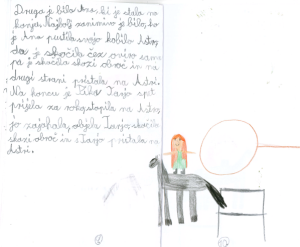 Druga je bila Aza, ki je stala na
konju. Najbolj zanimivo je bilo, ko
je Ana pustila svojo kobilo Astro,
da je skočila čez oviro sama
pa je skočila skozi obroč in na
drugi strani pristala na Astri.
Na koncu je Tanjo spet
prijela za roko, stopila na Astro,
jo zajahala, objela Tanjo, skočila
skozi obroč in s Tanjo pristala na
Astri.